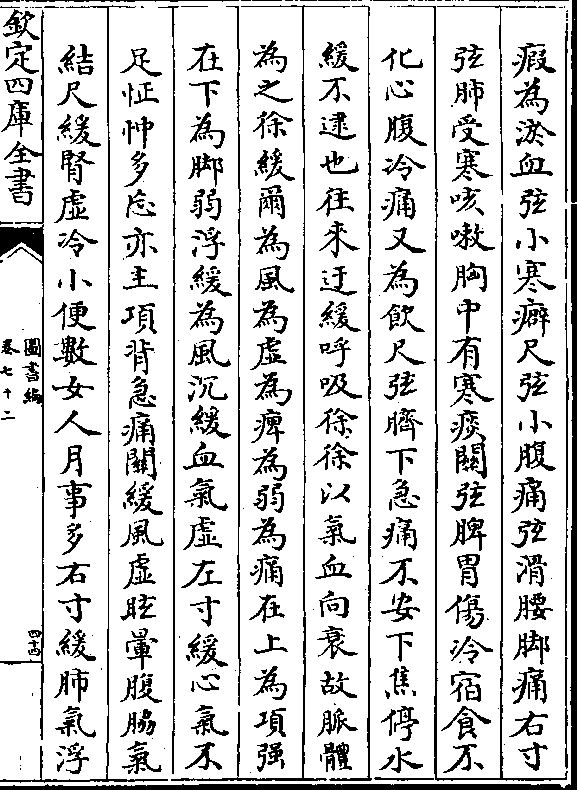 瘕為淤血弦小寒癖尺弦小腹痛弦滑腰脚痛右寸
弦肺受寒咳嗽胸中有寒痰關弦脾胃傷冷宿食不
化心腹冷痛又為飲尺弦臍下急痛不安下焦停水
緩不逮也往来迂緩呼吸徐徐以氣血向衰故脈體
為之徐緩爾為風為虛為痺為弱為痛在上為項强
在下為脚弱浮緩為風沉緩血氣虛左寸緩心氣不
足怔忡多忘亦主項背急痛關緩風虛眩暈腹脇氣
結尺緩腎虛冷小便數女人月事多右寸緩肺氣浮
欽定四庫全書
圖書編
卷七十二
四十四